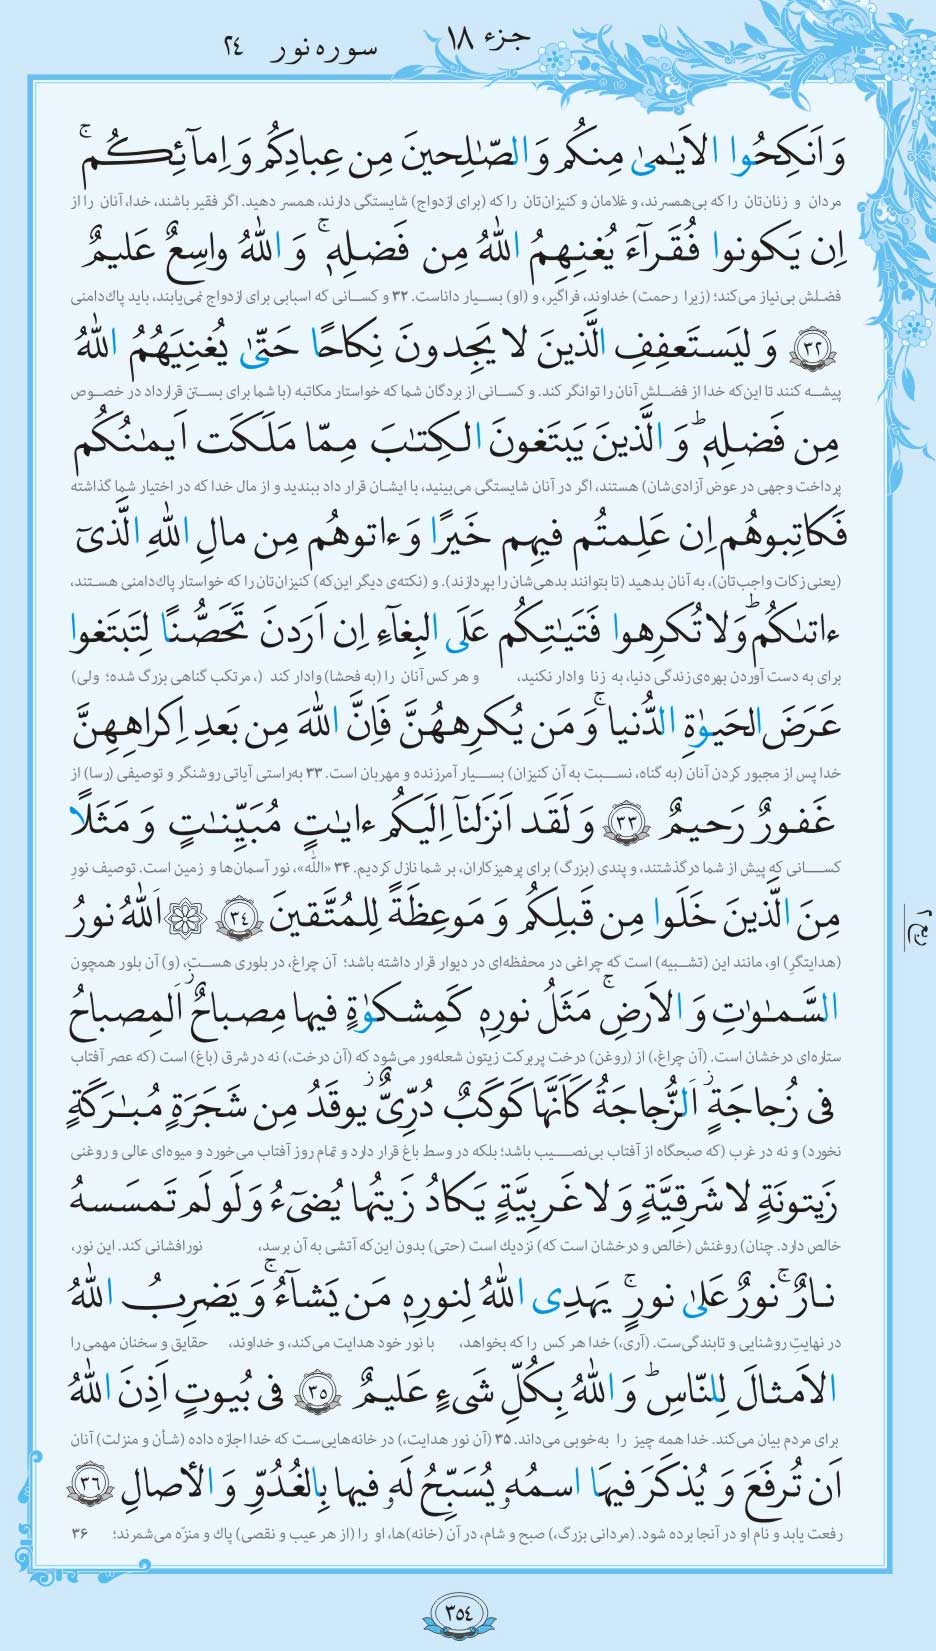 جزء ۱۸
سوره نور ۲۴
وَ اَنکِحُوا الاَیٰمیٰ مِنکُم وَ الصّٰلِحینَ مِن عِبادِکُم وَ اِمآئِکُم ۚ
مردان و زنان‌تان را که بی‌همسرند، و غلامان و کنیزان‌تان را که (برای ازدواج) شایستگی دارند، همسر دهید. اگر فقیر باشند، خدا، آنان را از
اِن یَکونوا فُقَرآءَ یُغنِهِمُ اللّٰهُ مِن فَضلِهٖ ۚ وَ اللّٰهُ واسِعٌ عَلیمٌ
فضلش بی‌نیاز می‌کند؛ (زیرا رحمت) خداوند، فراگیر، و (او) بسیار داناست. ۳۲ و کسانی که اسبابی برای ازدواج نمی‌یابند، باید پاک‌دامنی
۳۲ وَ لیَستَعفِفِ الَّذینَ لا یَجِدونَ نِکاحًا حَتّیٰ یُغنِیَهُمُ اللّٰهُ
پیشه کنند تا این‌که خدا از فضلش آنان را توانگر کند. و کسانی از بردگان شما که خواستار مکاتبه (با شما برای بستن قرارداد در خصوص
مِن فَضلِهٖ ۗ وَ الَّذینَ یَبتَغونَ الکِتٰبَ مِمّا مَلَکَت اَیمٰنُکُم
پرداخت وجهی در عوض آزادی‌شان) هستند، اگر در آنان شایستگی می‌بینید، با ایشان قرار داد ببندید و از مال خدا که در اختیار شما گذاشته
فَکاتِبوهُم اِن عَلِمتُم فیهِم خَیرًا وَ ءاتوهُم مِن مالِ اللّٰهِ الَّذیٓ
(یعنی زکات واجب‌تان)، به آنان بدهید (تا بتوانند بدهی‌شان را بپردازند). و (نکته‌ی دیگر این‌که) کنیزان‌تان را که خواستار پاک‌دامنی هستند،
ءاتىٰکُم ۚ وَ لا تُکرِهوا فَتَیٰتِکُم عَلَی البِغآءِ اِن اَرَدنَ تَحَصُّنًا لِتَبتَغوا
برای به دست آوردن بهره‌ی زندگی دنیا، به زنا وادار نکنید، و هر کس آنان را (به فحشا) وادار کند (، مرتکب گناهی بزرگ شده؛ ولی)
عَرَضَ الحَیوٰةِ الدُّنیا ۚ وَ مَن یُکرِههُنَّ فَاِنَّ اللّٰهَ مِن بَعدِ اِکراهِهِنَّ
خدا پس از مجبور کردن آنان (به گناه، نسبت به آن کنیزان) بسیار آمرزنده و مهربان است. ۳۳ به‌راستی آیاتی روشنگر و توصیفی (رسا) از
غَفورٌ رَحیمٌ ۳۳ وَ لَقَد اَنزَلنآ اِلَیکُم ءایٰتٍ مُبَیِّنٰتٍ وَ مَثَلًا
کسانی که پیش از شما درگذشتند، و پندی (بزرگ) برای پرهیزکاران، بر شما نازل کردیم. ۳۴ «الله»، نور آسمان‌ها و زمین است. توصیف نورِ
مِنَ الَّذینَ خَلَوا مِن قَبلِکُم وَ مَوعِظَةً لِلمُتَّقینَ ۳۴ اَللّٰهُ نورُ
(هدایتگرِ) او، مانند این (تشبیه) است که چراغی در محفظه‌ای در دیوار قرار داشته باشد؛ آن چراغ، در بلوری هست، (و) آن بلور همچون
السَّمٰوٰتِ وَ الاَرضِ ۚ مَثَلُ نورِهٖ کَمِشکوٰةٍ فیها مِصباحٌ ۖ اَلمِصباحُ
ستاره‌ای درخشان است. (آن چراغ،) از (روغن) درخت پربرکت زیتون شعله‌ور می‌شود که (آن درخت،) نه در شرق (باغ) است (که عصر آفتاب
فی زُجاجَةٍ ۖ اَلزُّجاجَةُ کَاَنَّها کَوکَبٌ دُرِّیٌّ یوقَدُ مِن شَجَرَةٍ مُبٰرَکَةٍ
نخورد) و نه در غرب (که صبحگاه از آفتاب بی‌نصیب باشد؛ بلکه در وسط باغ قرار دارد و تمام روز آفتاب می‌خورد و میوه‌ای عالی و روغنی
زَیتونَةٍ لا شَرقِیَّةٍ وَ لا غَربِیَّةٍ یَکادُ زَیتُها یُضیٓءُ وَ لَو لَم تَمسَسهُ
خالص دارد. چنان) روغنش (خالص و درخشان است که) نزدیک است (حتی) بدون این‌که آتشی به آن برسد، نورافشانی کند. این نور،
نارٌ ۚ نورٌ عَلیٰ نورٍ ۚ یَهدِی اللّٰهُ لِنورِهٖ مَن یَشآءُ ۚ وَ یَضرِبُ اللّٰهُ
در نهایتِ روشنایی و تابندگی‌ست. (آری،) خدا هر کس را که بخواهد، با نور خود هدایت می‌کند، و خداوند، حقایق و سخنان مهمی را
الاَمثالَ لِلنّاسِ ۗ وَ اللّٰهُ بِکُلِّ شَیءٍ عَلیمٌ ۳۵ فی بُیوتٍ اَذِنَ اللّٰهُ
برای مردم بیان می‌کند. خدا همه چیز را به‌خوبی می‌داند. ۳۵ (آن نور هدایت،) در خانه‌هایی‌ست که خدا اجازه داده (شأن و منزلت) آنان
اَن تُرفَعَ وَ یُذکَرَ فیهَا اسمُهٗ یُسَبِّحُ لَهٗ فیها بِالغُدُوِّ وَ الأصالِ ۳۶
رفعت یابد و نام او در آنجا برده شود. (مردانی بزرگ،) صبح و شام، در آن (خانه)ها، او را (از هر عیب و نقصی) پاک و منزّه می‌شمرند؛ ۳۶
۳۵۴